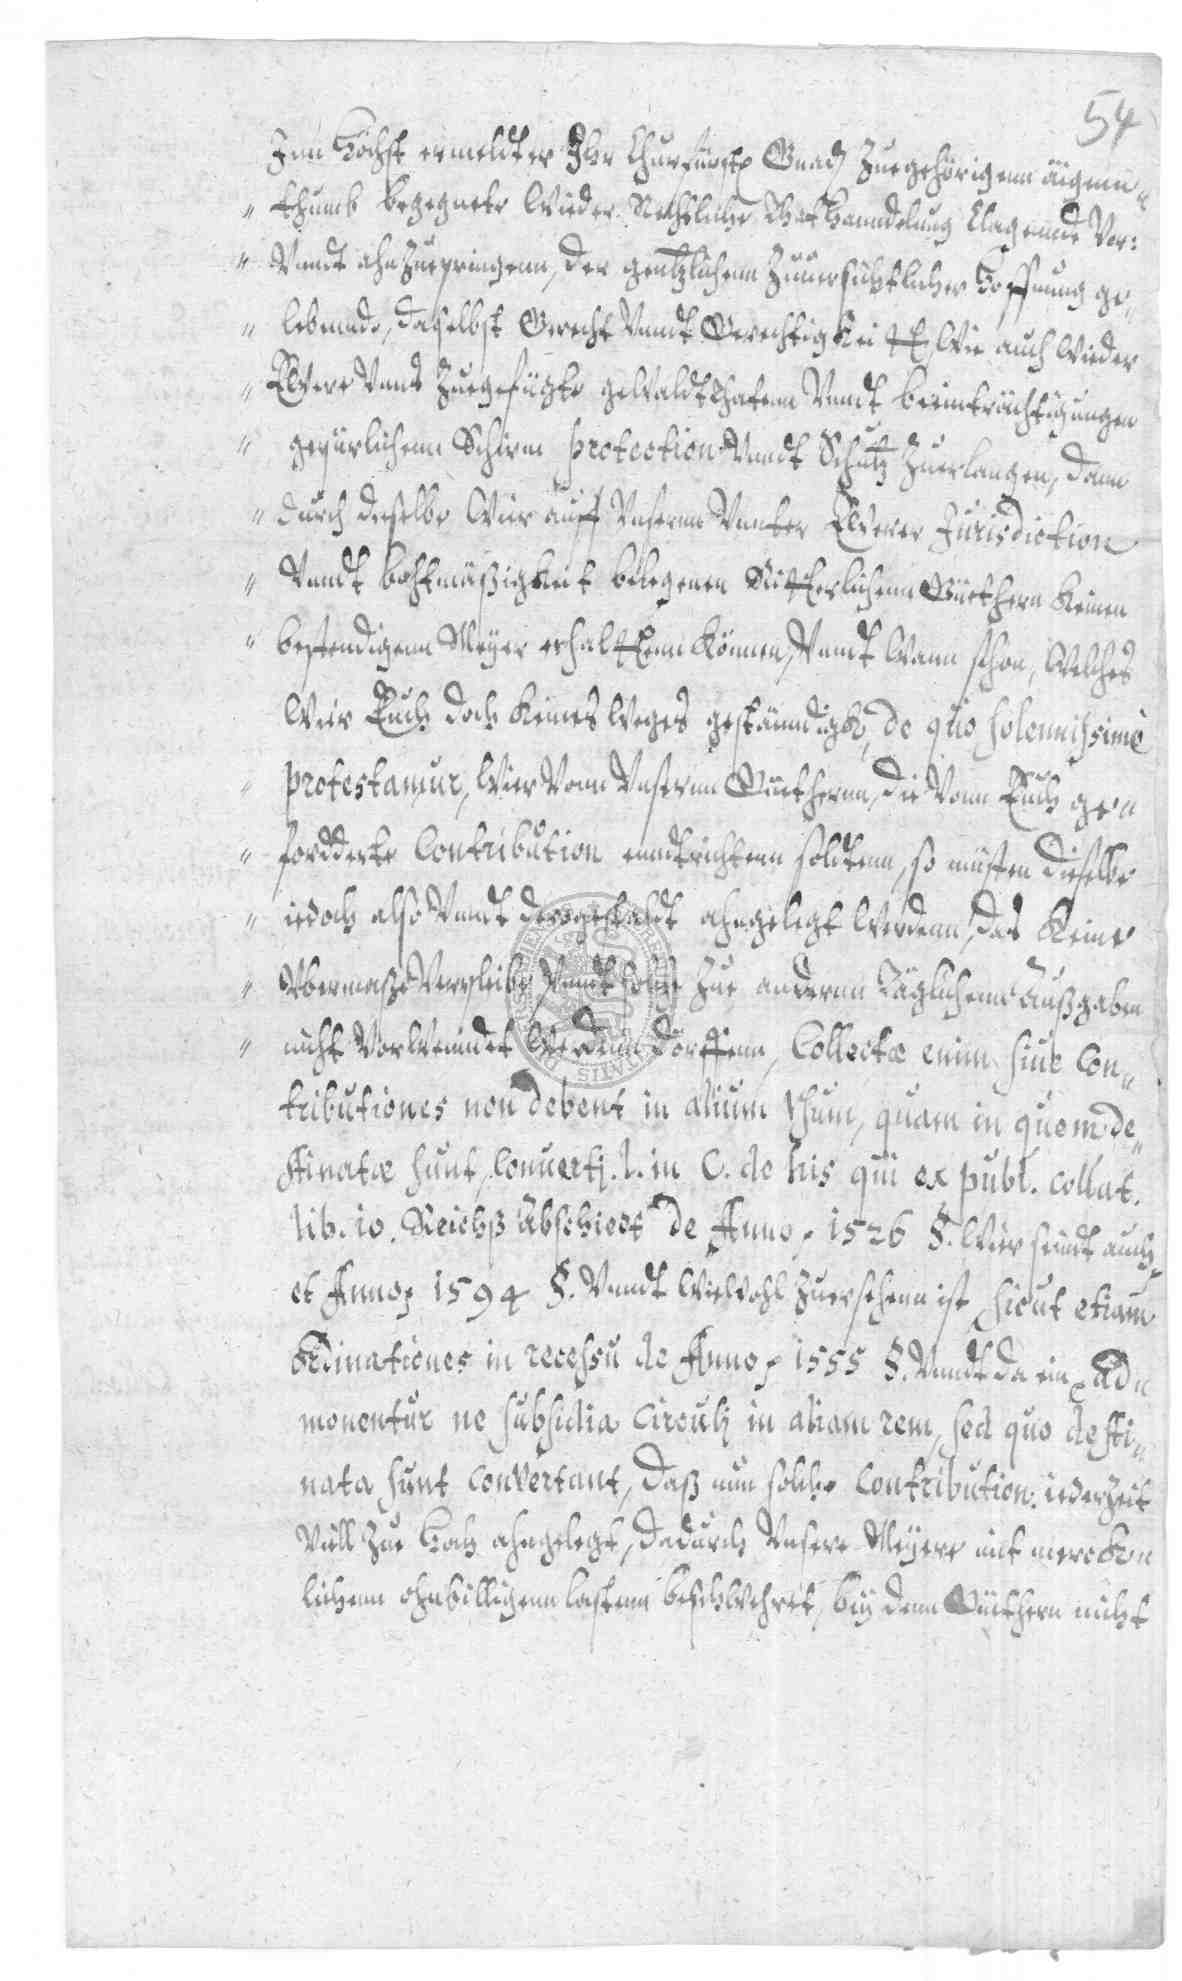 54
Inn höchst ermeldter Ihr Churfürstl Gnad Zuegehörigenn äigenn„
„ thumb begegnete Wieder Rechtliche That hanndelung Clagennde Vor:
„ Vnndt ahnZuepringenn, der genntzlichenn Zuuersichtlicher hoffnung ge„
„ lebennde, daselbst Gerecht Vnndt Gerechtigkeitt, Wie auch Wieder
„ Ewere Vnns Zuegefügte gewaldtthatenn Vnndt beeintrüchtigungen
„ gepürlichenn Schirm protection Vnndt Schutz Zuerlangen, dann
„ durch dieselbe Wier auff Vnsernn Vnnter Ewerer Jurisdiction
„ Vnndt bottmäßigkeit belegenen Ritterlichenn Güethern keinen
„ bestendigenn Meÿer erhalttenn können, Vnndt Wann schon, Welches
Wier Euch doch keines Weges gestänndigk, de quo solennissimè
„ protestamur, Wier Vonn Vnsernn Güethernn, die Vonn Euch ge„
„ fordderte Contribution enndtrichtenn soldtenn, so müsten dieselbe
„ iedoch also Vnndt dergestaldt ahngelegt Werdenn, das keine
„ Vbermaße Verpleibe Vnndt solche Zue andernn Täglichenn Außgaben
„ nicht Vorwenndet Werdenn dorffenn, Collectæ enim siue Con„
tributiones non debent in alium Vsum, quam in quem de„
stinatæ sunt, conuertj. l. in C. de his qui ex publ. collat.
lib. 10. Reichß Abschiedt de Anno 1526 §. Wier seindt auch,
et Anno 1594 §. Vnndt Wiewohl Zuersehenn ist, sicut etiam
ordinationes in recessu de Anno 1555 §. Vnndt da ein Ad„
monentur ne subsidia Circulj in aliam rem, sed quo desti„
nata sunt convertant, daß nun solche Contribution iederZeit
Viell Zue hoch ahngelegt, dadurch Vnsere Meÿere mit mercken„
lichenn ohnbilligenn lastenn beschwehret, beÿ denn Güethern nicht